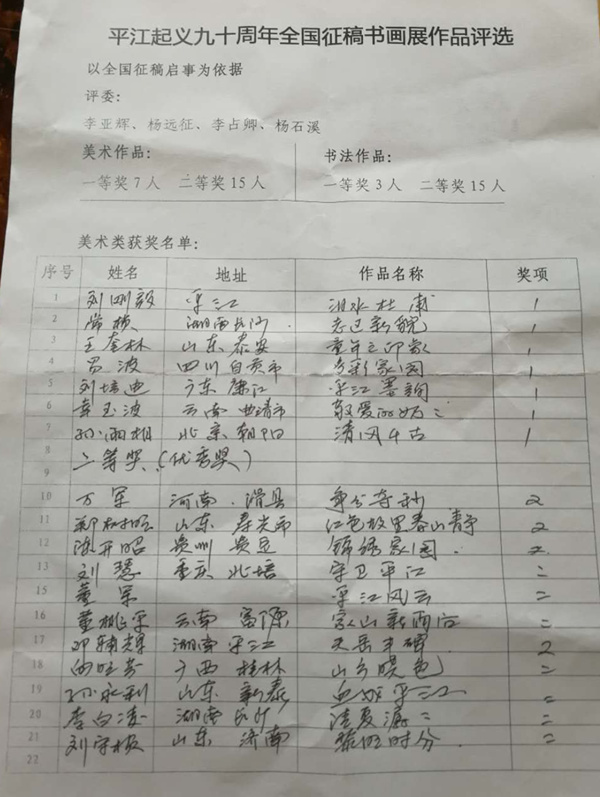 平江起义九十周年全国征稿书画展作品评选
以全国征稿启事为依据
评委：
李亚辉、杨远征、李占卿、杨石溪
美术作品： 书法作品：
一等奖7人 二等奖15人 一等奖3人 二等奖15人
美术类获奖名单：
序号 姓名 地址 作品名称 奖项
1 刘刚毅 平江 汨水杜甫 1
2 湖南长沙 1
3 王奎林 山东泰安 童年之印象 1
4 罗波 四川自贡市 多彩家园 1
5 刘培迪 广东廉江 平江墨韵 1
6 李玉波 云南曲靖市 敬爱的 1
7 孙雨相 北京朝阳 清风千古 1
8 二等奖（优秀奖）
9
10 万军 河南.滑县 2
11 山东 寿光市 红色故里春山静 2
12 陈开昭 贵州 贵定 锦绣家园. 2
13 刘慧 重庆 北培 守卫平江 二
15 董军 平江风云 二
16 云南 富源 家山新雨后 二
17 邓辅辉 湖南平江 天岳丰碑 2
18 广西 桂林 山乡晓色 二
19 孙永利 山东 新泰 平江 二
20 李白凌 湖南 长沙 二
21 刘守振 山东 济南 黎明时分. 二
22